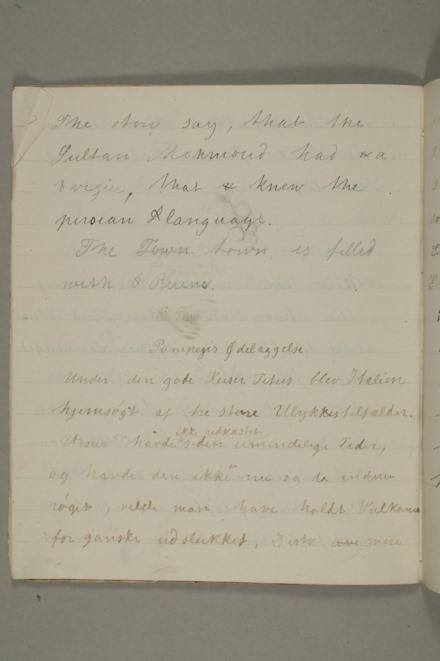 The storie say, that the
Sultan Mehmoud had a
vegir, that knew the
persean language.
The Town town, is filled
with Ruens.
Pompegis Ødelæggelse
Under den gode Keiser Titus blev Italien
hjemsøgt af tre store Ulykkestilfælder.
ikke udkastet
Vesuv havde siden umindelige Tider,
og havde den ikke nu og da endnu
røget, vilde man have holdt Vulkanen
for ganske udslukket, Desto mere